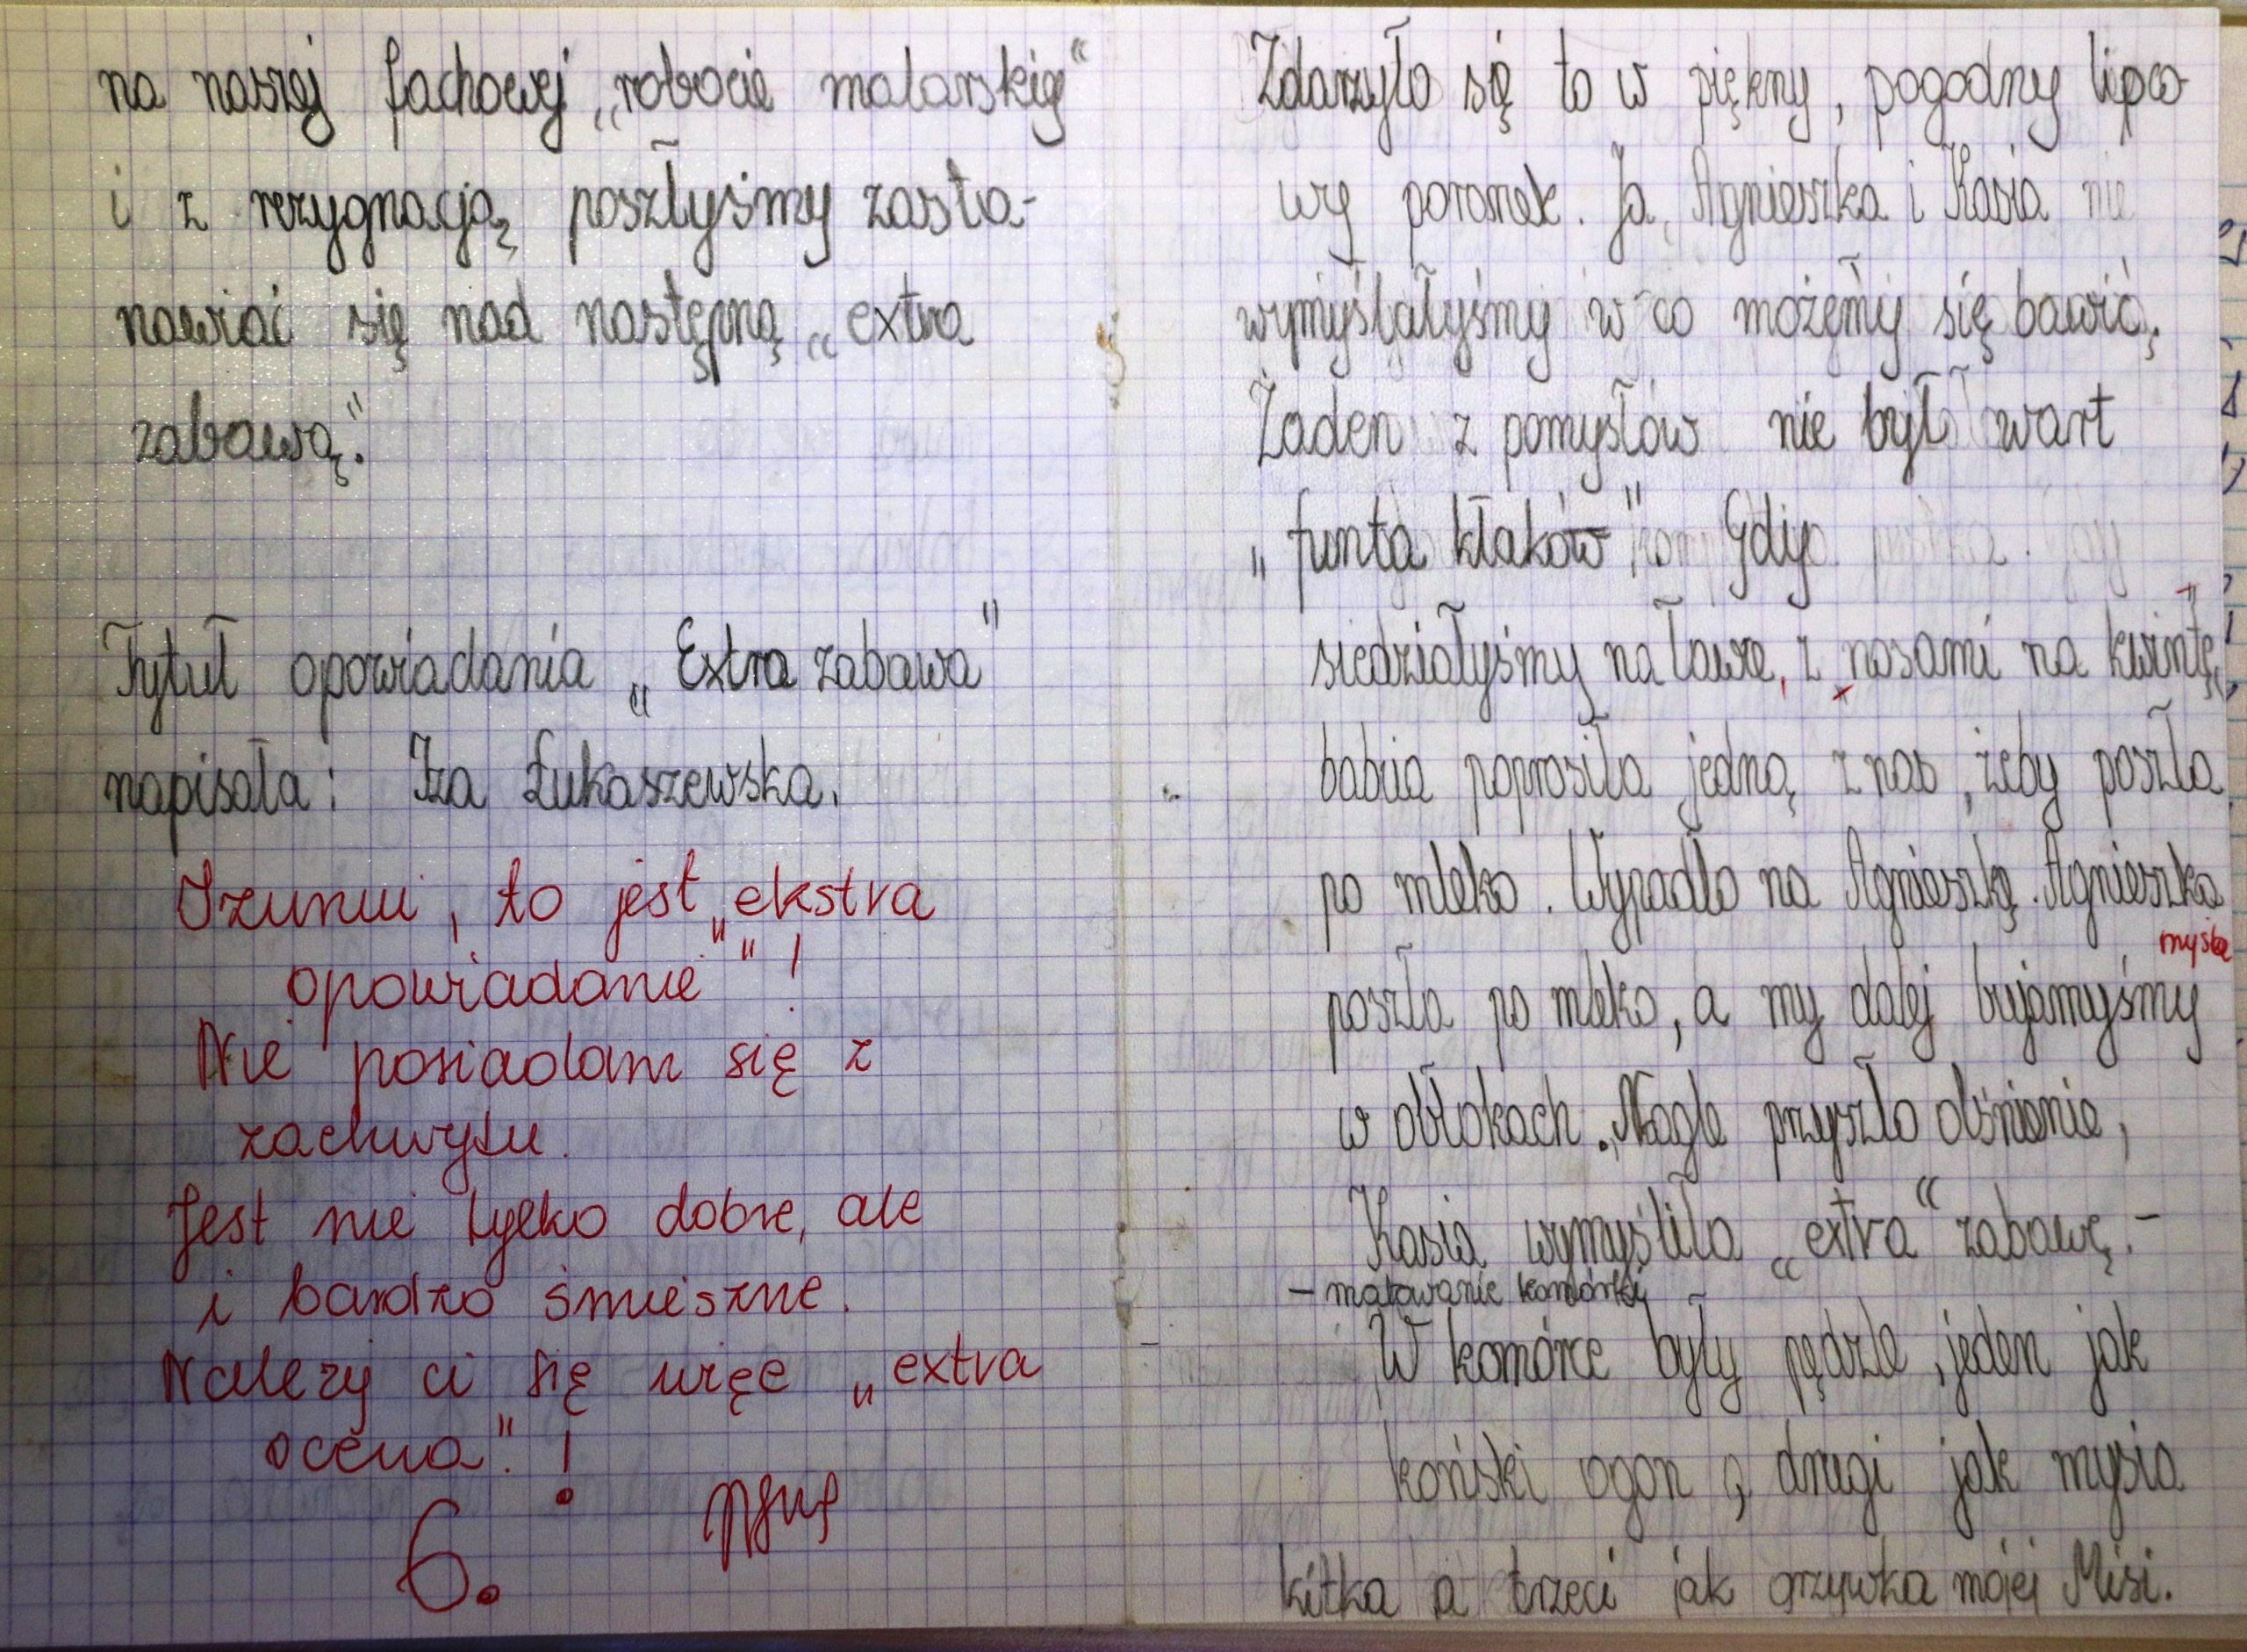 na naszej fachowej „robocie malarskiej"
i z rezygnacją poszłyśmy zasta-
nawiać się nad następną „extra
zabawą."
Tytuł opowiadania „Extra zabawa"
napisała: Iza Łukaszewska.
Izuniu, to jest „ekstra
opowiadanie"!
Nie posiadam się z
zachwytu.
Jest nie tylko dobre, ale
i bardzo śmieszne.
Należy ci się więc „extra
ocena"!
6.
Zdarzyło się to w piękny, pogodny lipco
wy poranek. Ja, Agnieszka i Kasia nie
wymyślałyśmy w co możemy się bawić.
Żaden z pomysłów nie był wart
„funta kłaków". Gdy
siedziałyśmy na ławce, z „nosami na kwintę"
babcia poprosiła jedną z nas, żeby poszła
po mleko. Wypadło na Agnieszkę. Agnieszka
myśla
poszła po mleko, a my dalej bujamyśmy
w obłokach. Nagle przyszło olśnienie,
Kasia wymyśliła „extra" zabawę. -
- malowanie komórki
W komórce były pędzle, jeden jak
koński ogon, drugi jak mysia
kitka a trzeci jak grzywka mojej Misi.